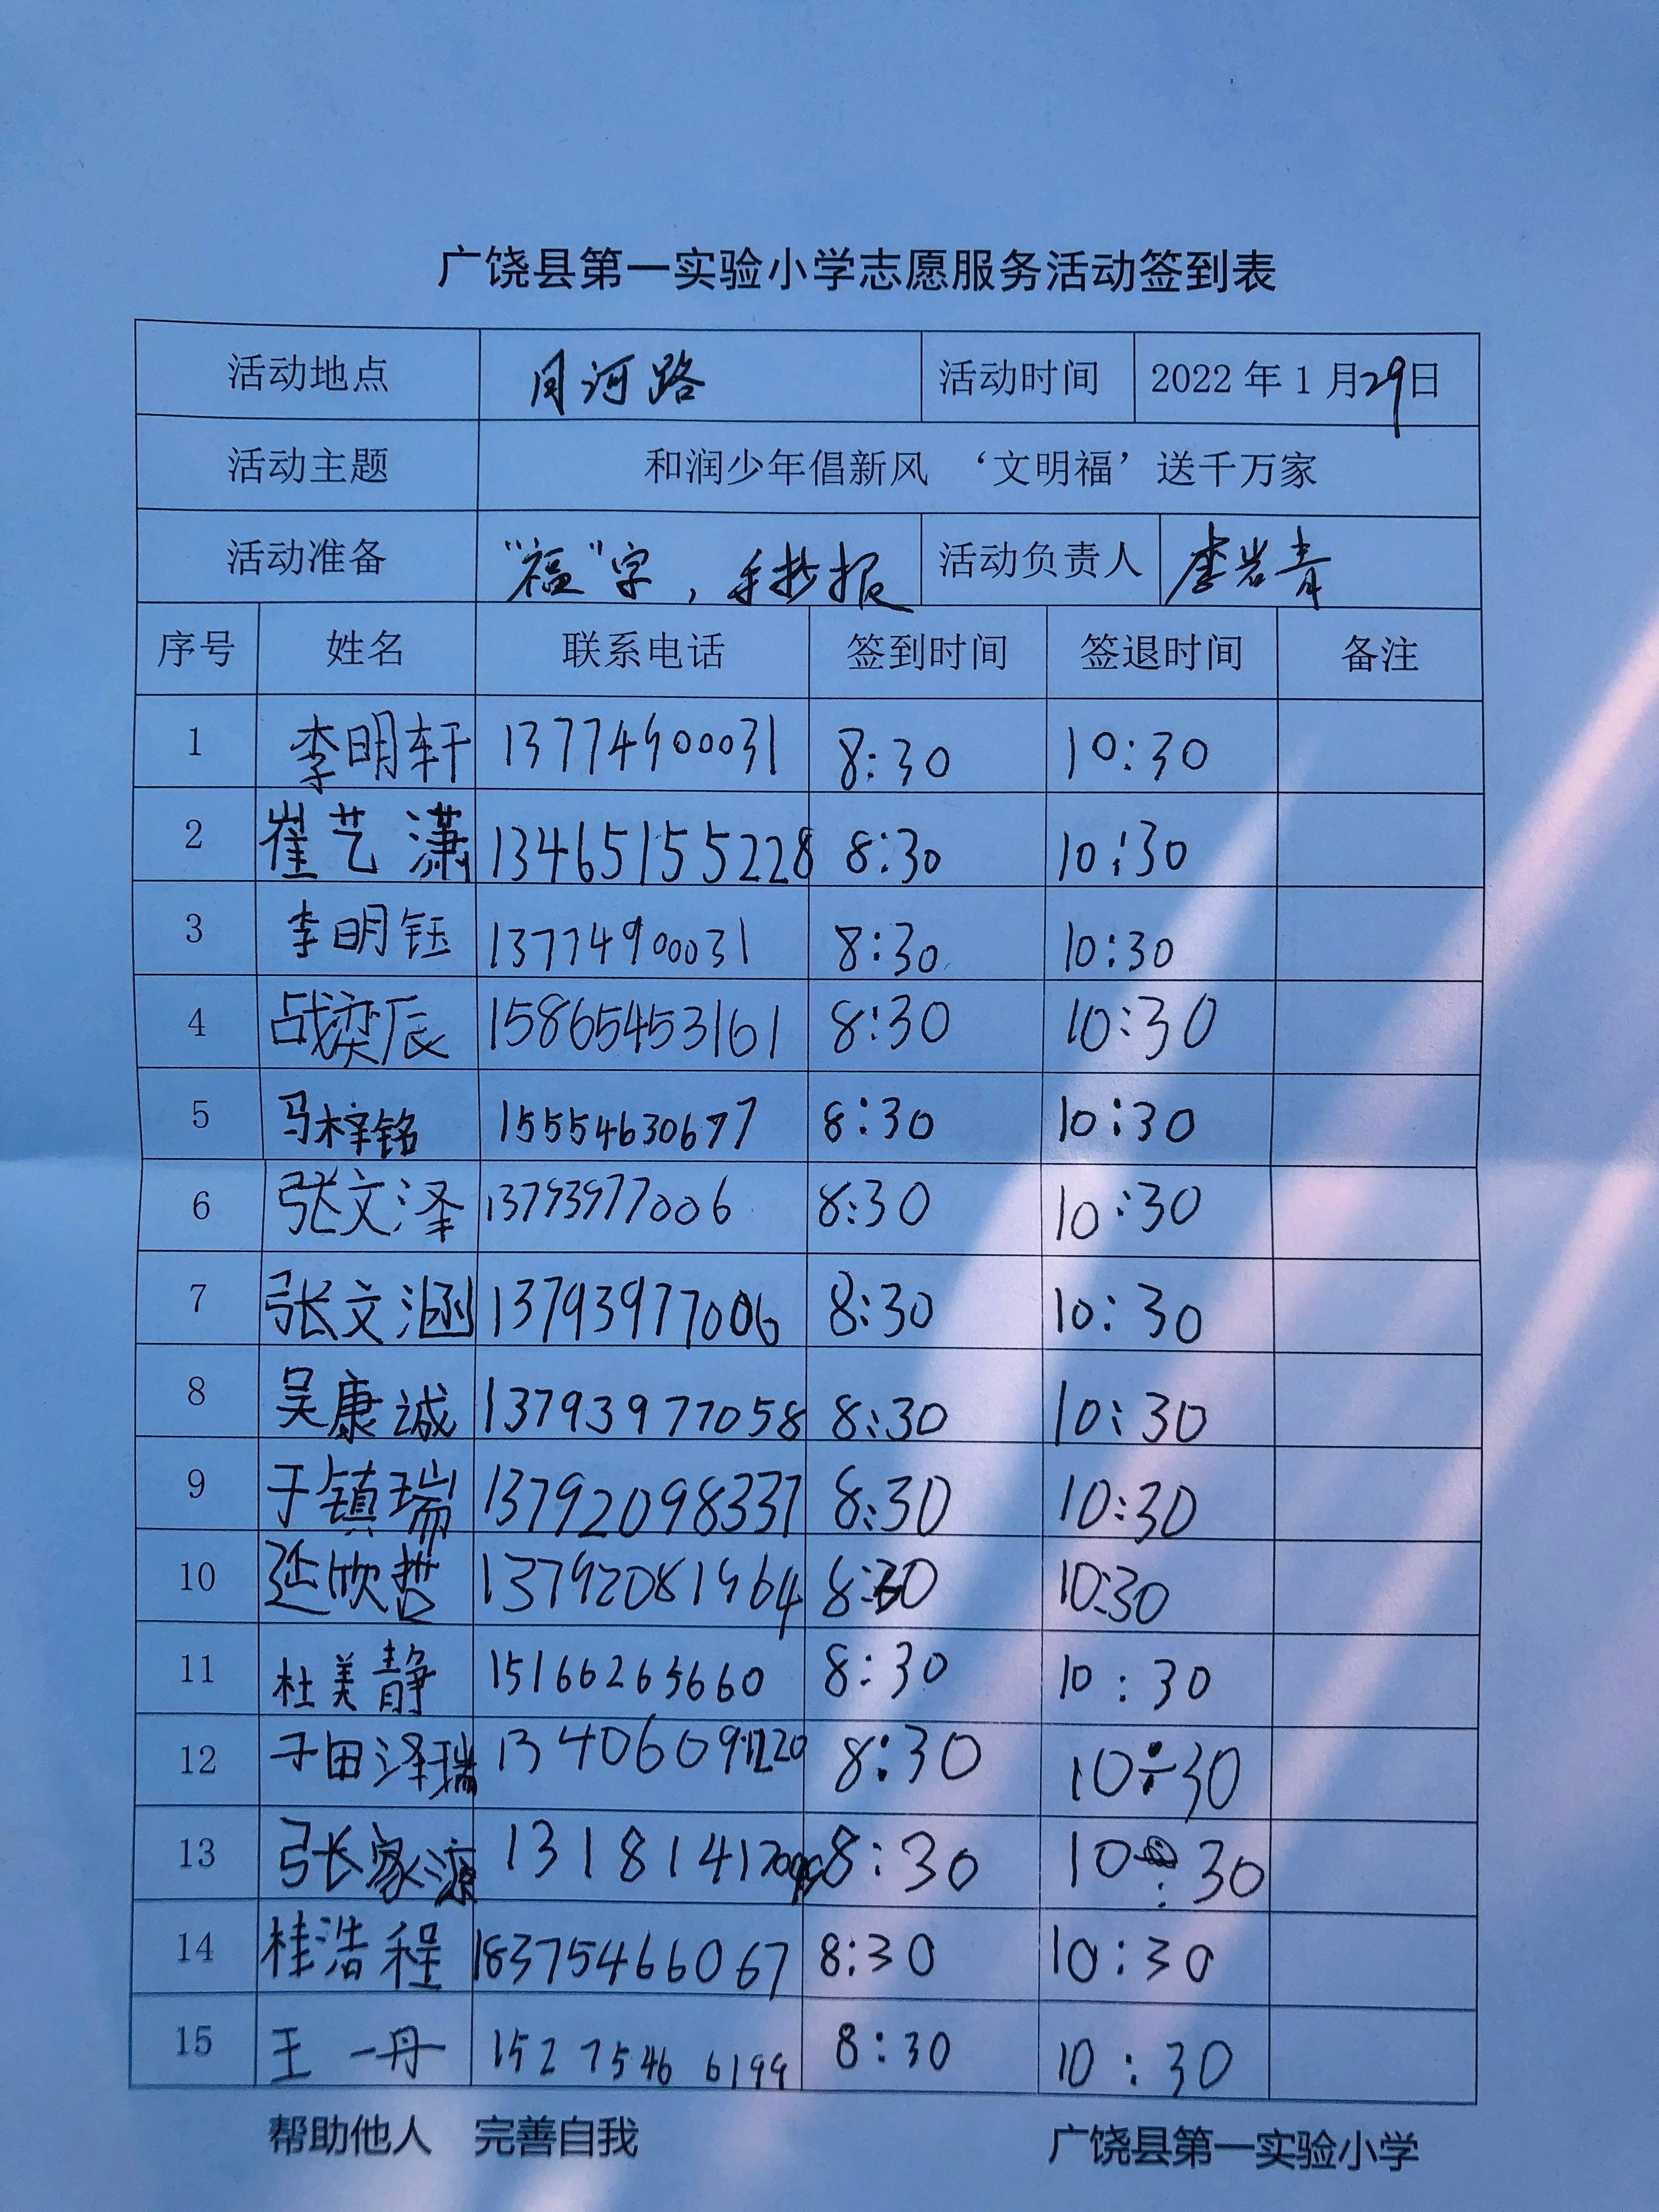 广饶县第一实验小学志愿服务活动签到表
活动地点 月河路 活动时间 2022年1月29日
活动主题 和润少年倡新风 ‘文明福’送千万家
活动准备 “福”字，手抄报 活动负责人 李岩青
序号 姓名 联系电话 签到时间 签退时间 备注
1 李明轩 13774900031 8:30 10:30
2 崔艺潇 13465155228 8:30 10:30
3 李明钰 13774900031 8:30 10:30
4 战奕辰 15865453161 8:30 10:30
5 马梓铭 15554630677 8:30 10:30
6 张文泽 13793977006 8:30 10:30
7 张文涵 13793977006 8:30 10:30
8 吴康诚 13793977058 8:30 10:30
9 于镇瑞 13792098337 8:30 10:30
10 延欣哲 13792081964 8:30 10:30
11 杜美静 15166263660 8:30 10:30
12 于田泽瑞 8:30 10:30
13 张家源 8:30 10:30
14 桂浩程 18375466067 8:30 10:30
15 王一丹 15275466199 8:30 10:30
帮助他人 完善自我 广饶县第一实验小学